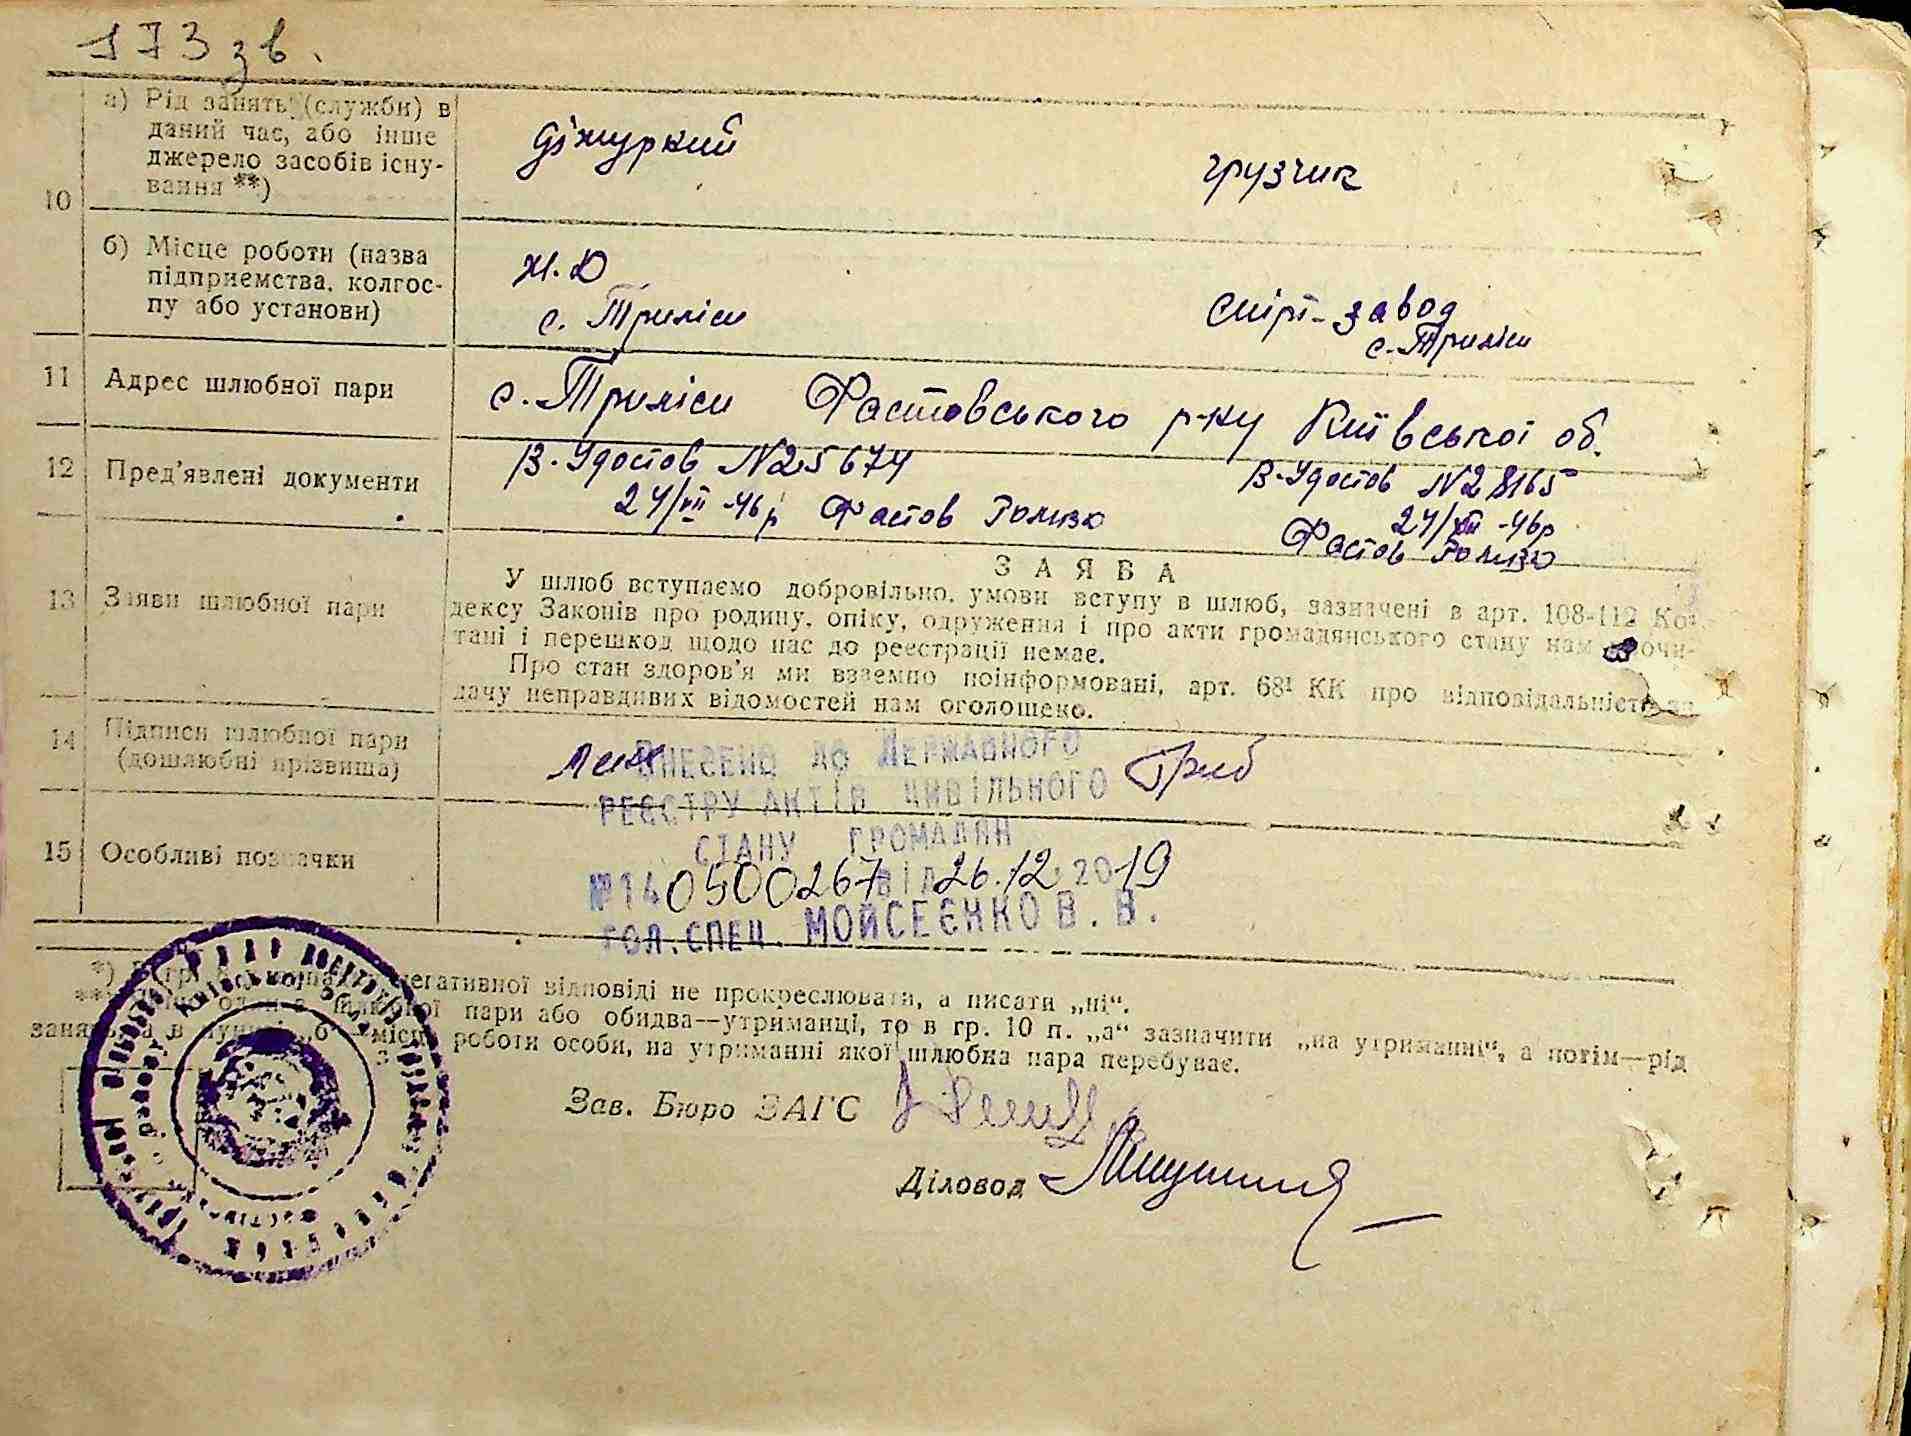 173 зв.
10
а) Рід занять (служби) в
даний час, або інше
джерело засобів існу-
вання **)
діжуркий
грузчик
б) Місце роботи (назва
підприємства, колгос-
пу або установи)
с. Триліси
Спірт-завод
с. Триліси
11
Адрес шлюбної пари
с. Триліси Фастовського р-ну Київської об.
12
Пред'явлені документи
В. Удостов №25674
24/VII -46р Фастов
В. Удостов №28165
24/VII -46р
Фастов
13
Заяви шлюбної пари
ЗАЯВА
У шлюб вступаємо добровільно, умови вступу в шлюб, зазначені в арт. 108-112 Ко-
дексу Законів про родину, опіку, одруження і про акти громадянського стану нам
тані і перешкод щодо нас до реєстрації немає.
Про стан здоров'я ми взаємно поінформовані, арт. 68¹ КК про відповідальність за
дачу неправдивих відомостей нам оголошено.
14
Підписи шлюбної пари
(дошлюбні прізвища)
Гриб
Внесено до Державного
реєстру актів цивільного
стану громадян
№140500267 від 26.12.2019
гол.спец. Мойсеєнко В.В.
15
Особливі позначки
негативної відповіді не прокреслювати, а писати „ні“.
пари або обидва—утриманці, то в гр. 10 п. „а“ зазначити „на утриманні“, а потім—рід
роботи особи, на утриманні якої шлюбна пара перебуває.
Зав. Бюро ЗАГС
Діловод